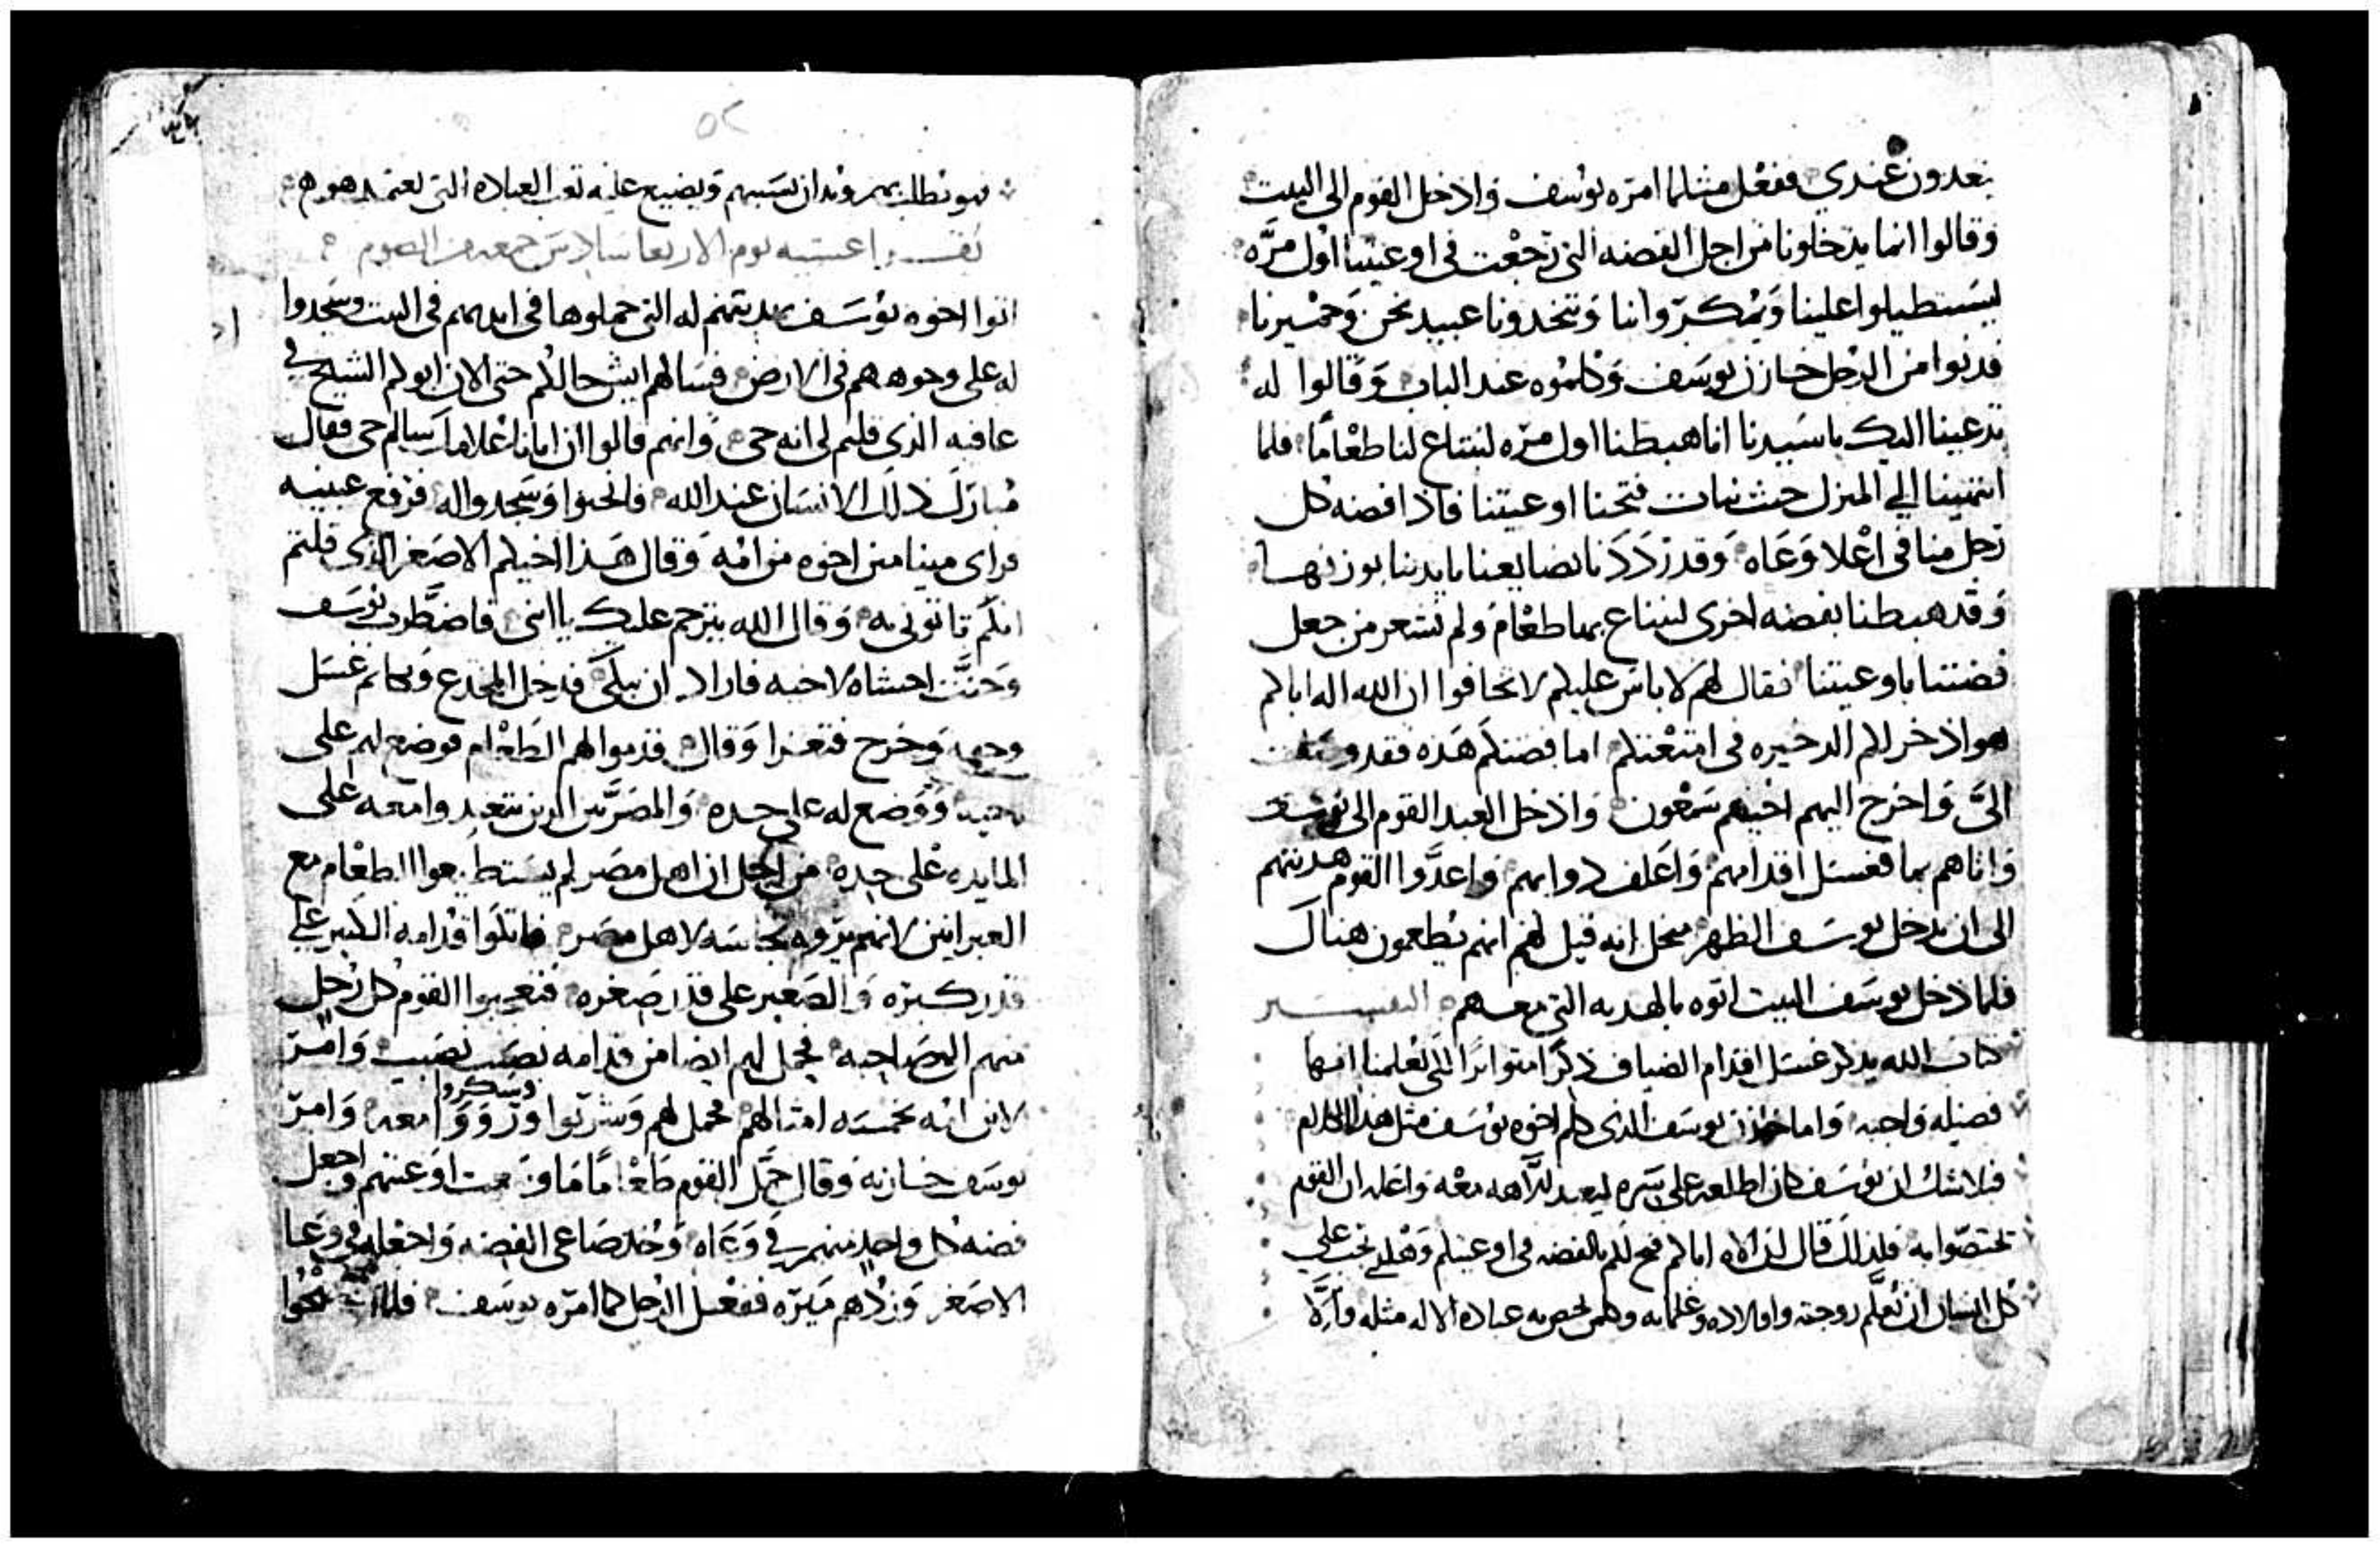 يتغدون عندي ففعل مثلما امره يوسف وادخل القوم الى البيت
وقالوا انما يدخلونا من اجل الفضه التي رجعت في اوعيتنا اول مره
ليستطيلوا علينا ويمكروا بنا ويتخدونا عبيد نحن وحميرنا
فدنوا من الرجل خازن يوسف وكلموه عند الباب وقالوا له
نرغب اليك يا سيدنا انا هبطنا اول مره لنبتاع لنا طعاما فلما
انتهينا الي المنزل حيث نبات فتحنا اوعيتنا فاذا فضه كل
رجل منا في اعلا وعاه وقد رددنا بضايعنا بايدينا بوزنها
وقد هبطنا بفضه اخرى لنبتاع بها طعام ولم نشعر من جعل
فضتنا باوعيتنا فقال لهم لا باس عليكم لا تخافوا ان الله اله اباكم
هو ادخر لكم الدخيره في امتعتكم اما فضتكم هذه فقد وصلت
الىَّ واخرج اليهم اخيهم شمعون وادخل العبد القوم الى بيت يوسف
واتاهم بما فغسل اقدامهم واعلف دوابهم واعدَّوا القوم هديتهم
الى ان يدخل يوسف الظهر من اجل انه قيل لهم انهم يطعمون هناك
فلما دخل يوسف البيت اتوه بالهديه التي معهم التفسير
كتاب الله يذكر غسل اقدام الضياف ذكرا متواترا لكي يعلمنا انها
فضيله واجبه واما خازن يوسف الذي كلم اخوه يوسف مثل هذا الكلام
فلا شك ان يوسف كان اطلعه على سره ليعبد للاهه معه واعلمه ان القوم
تختصوا به فلذلك قال لهم الاه اباكم فتح لكم بالفضه في اوعيتكم وهكدى يجب علي
كل انسان ان يعلم زوجته واولاده وغلمانه وكلمن يختص به عباده الاله مثله والّا
فهو يطلب بهم ويدان بسببهم ويضيع عليه تعب العباده التي يعتمدها هو
تقرا عشيه يوم الاربعا سادس جمعه من الصوم
اتوا اخوه يوسف بهديتهم له التي حملوها في ايديهم في البيت وسجدوا
له على وجوههم في الارض فسالهم ايش حالكم حتى الان ابوكم الشيخ في
عافيه الذي قلتم لي انه حي وانهم قالوا ان ابانا غلامك سالم حي فقال
مبارك ذلك الانسان عند الله فانحنوا وسجدوا له فرفع عينيه
فراى بنيامين اخوه من امه وقال هذا اخيكم الاصغر الذي قلتم
انكم تاتوني به وقال الله يترحم عليك يا ابني فاضطرب يوسف
وحنَّت احشاه لاخيه فاراد ان يبكي فدخل المخدع وبكا ثم غسل
وجهه وخرج فتعزا وقال قدموا لهم الطعام فوضع لهم على
وحده ووضع له على حده والمصريين الذين يتغدوا معه على
المايده على حده من اجل ان اهل مصر لم يستطيعوا الطعام مع
العبرانيين لانهم يروه نجاسه لاهل مصر فاتكوا قدامه الكبير على
قدر كبره والصغير على قدر صغره فتعجبوا القوم كل رجل
منهم الى صاحبه فحمل لهم ايضا من قدامه نصيب نصيب وامر
لابن امه بخمسه امثالهم فحمل لهم وشربوا وسكروا ورووا معه وامر
يوسف خازنه وقال حمّل القوم طعاما ما وسعت اوعيتهم واجعل
فضه كل واحد منهم في وعاه وخد صاعي الفضه واجعله في وعا
الاصغر وزدهم ميره ففعل الرجل كما امره يوسف فلما اصبحوا